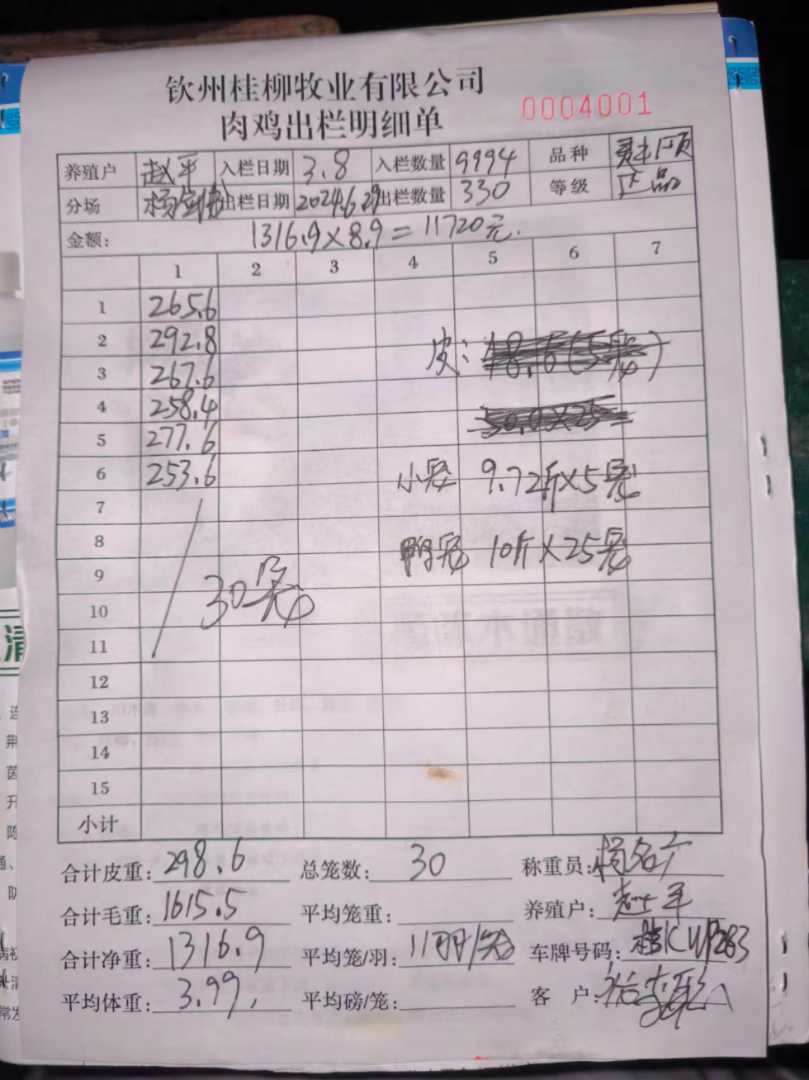 钦州桂柳牧业有限公司
肉鸡出栏明细单
0004001
养殖户 赵平 入栏日期 3.8 入栏数量 9994 品种
分场 出栏日期 2024.6.29 出栏数量 330 等级 正品
金额: 1316.9×8.9=11720元.
1 2 3 4 5 6 7
1 265.6
2 292.8
皮:
3 267.6
4 258.4
5 277.6
6 253.6 小笼 9.72斤×5笼
7
8 鸭笼 10斤×25笼
9
30笼
10
11
12
13
14
15
小计
合计皮重: 298.6 总笼数: 30 称重员:
合计毛重: 1615.5 平均笼重: 养殖户: 赵平
合计净重: 1316.9 平均笼/羽: 11羽/笼 车牌号码:
平均体重: 3.99, 平均磅/笼: 客 户: